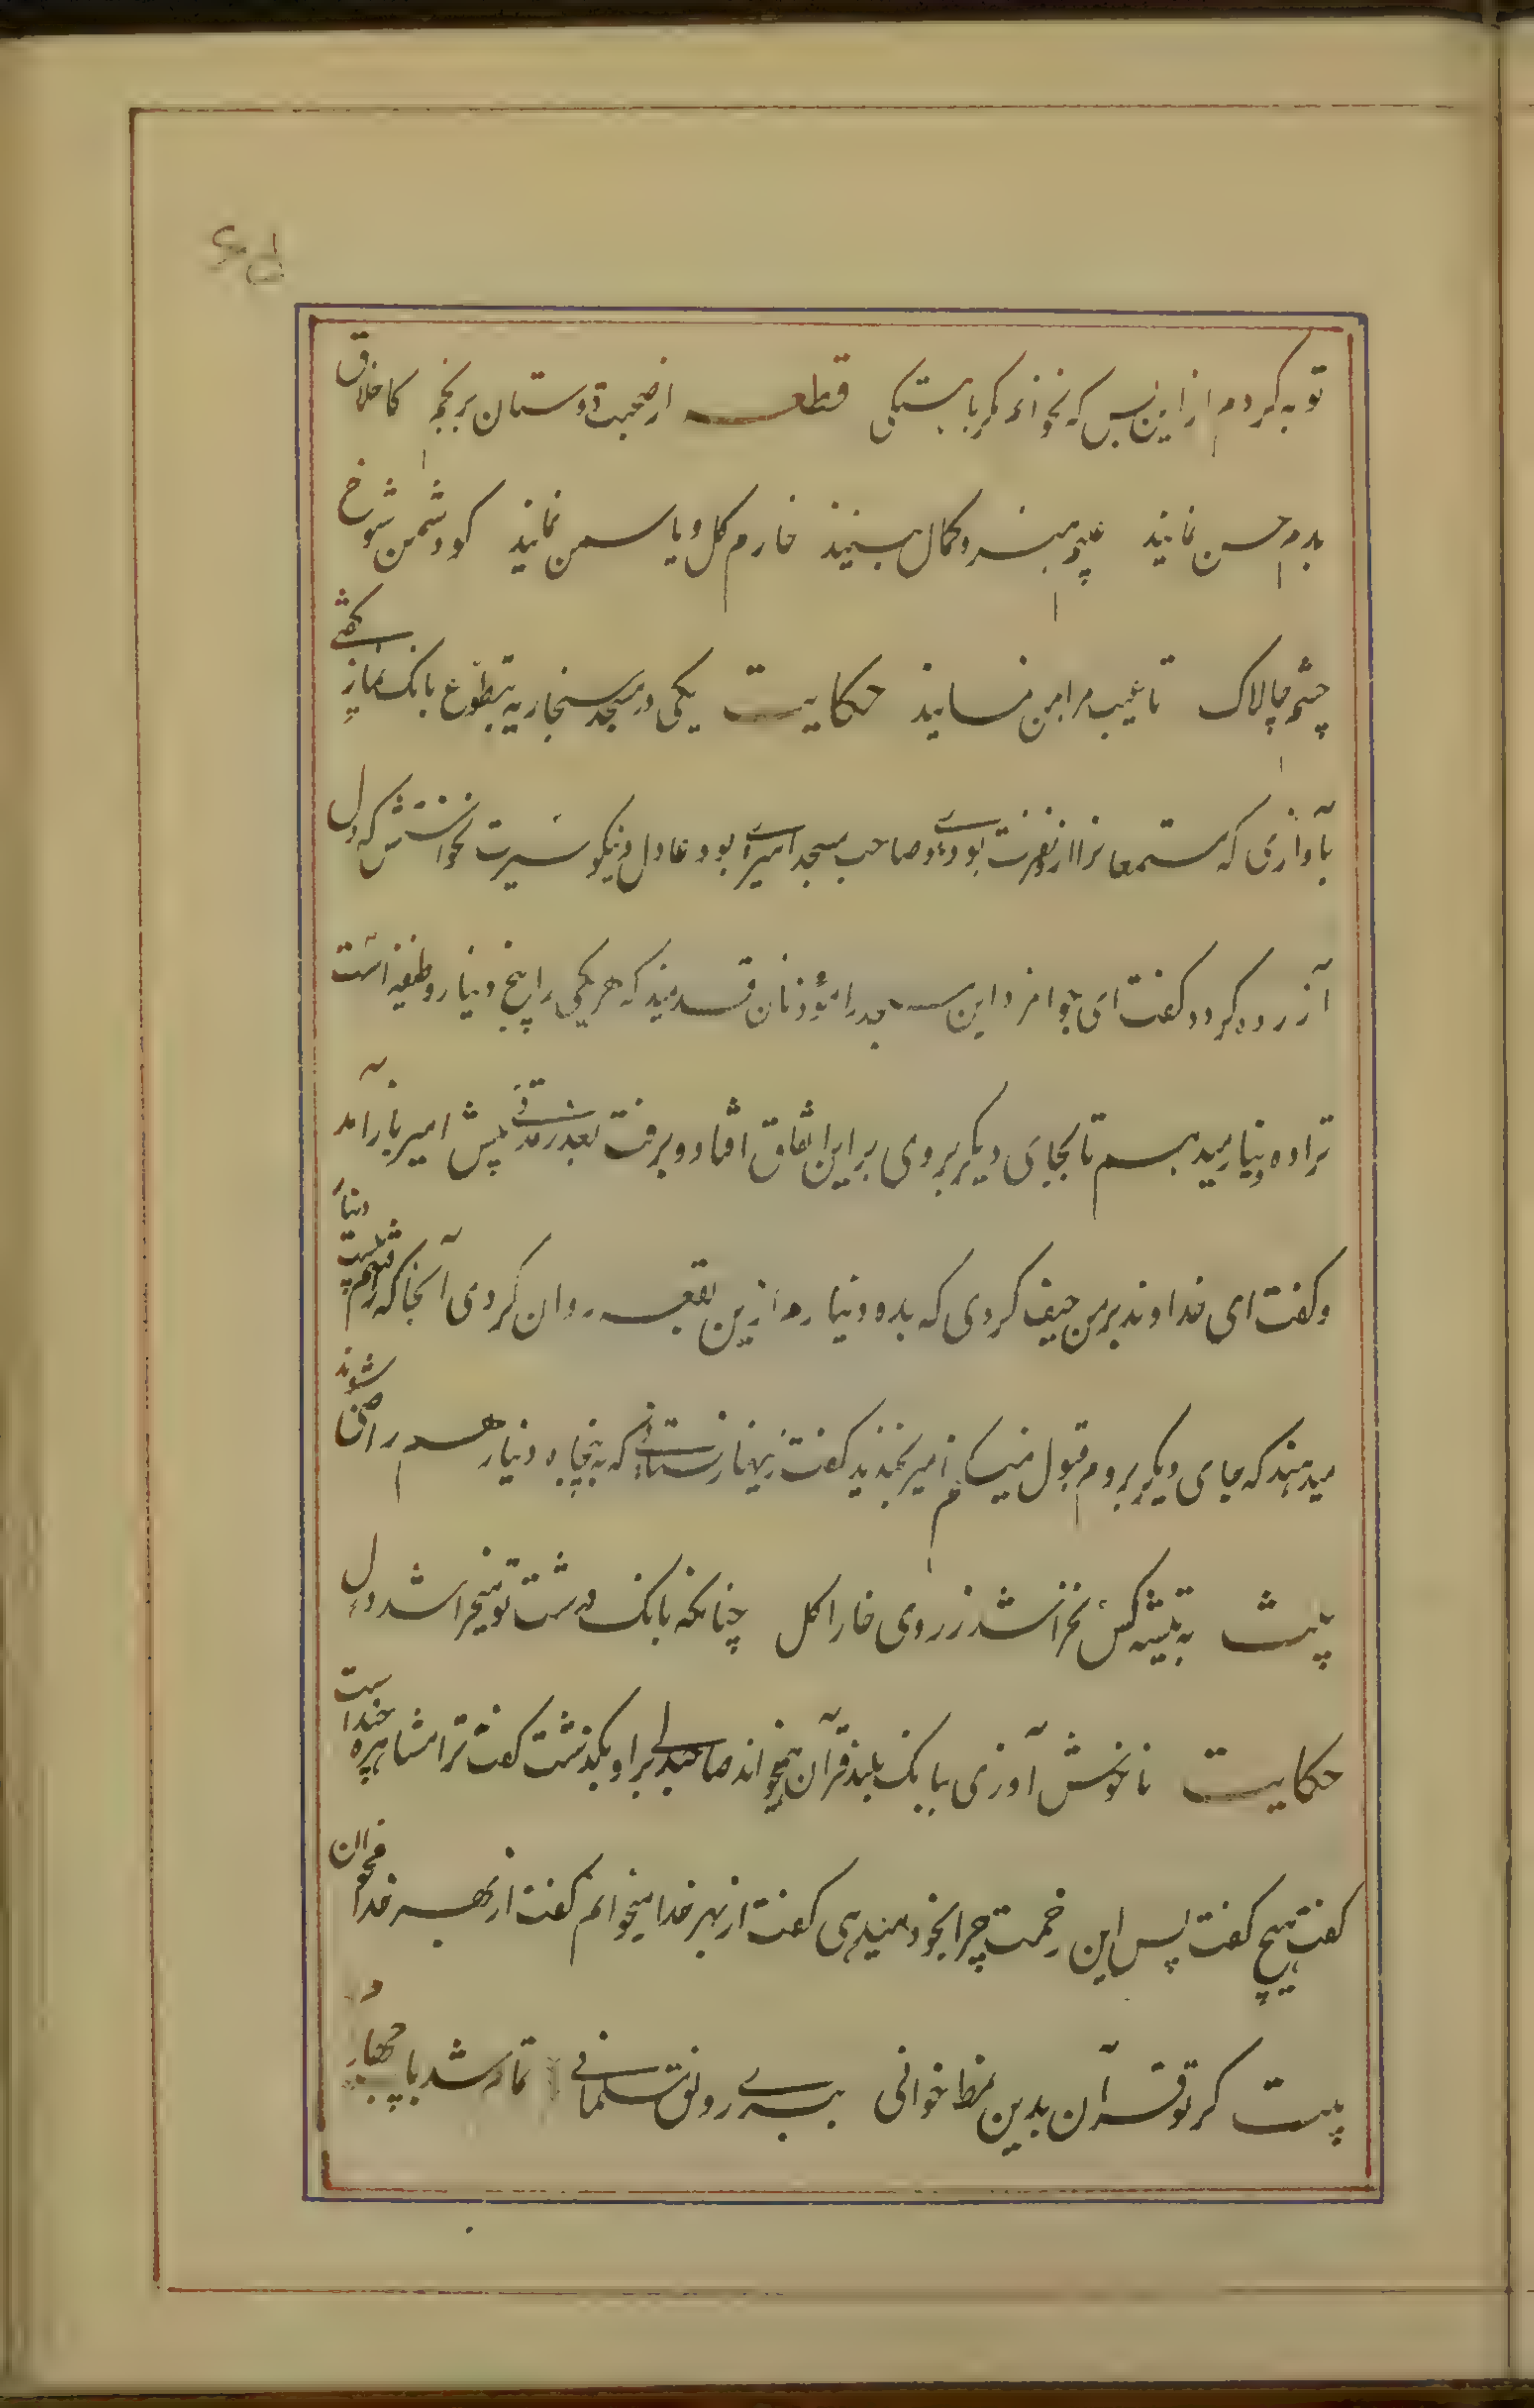 توبه کردم ازاین پس که نخوانم مگر بآهستگی قطعه از صحبت دوستان برنجم کاخلاق
بدم حسن نمایند عیبم هنر و کمال بینند خارم گل و یاسمن نمایند کو دشمن شوخ
چشم چالاک تا عیب مرا بمن نمایند حکایت یکی در مسجد سنجاریه بتطوع بانک نماز گفتی
بآوازی که مستمعانرا ازو نفرت بودی و صاحب مسجد امیری بود عادل و نیکو سیرت نخواستش که دل
آزرده گردد گفت ای جوانمرد این مسجد را مؤذنان قدیمند که هر یکی را پنج دینار وظیفه است
ترا ده دینار میدهم تا بجای دیگر بروی بر این اتفاق افتاد و برفت بعد از مدتی پیش امیر باز آمد
و گفت ای خداوند بر من حیف کردی که بده دینارم ازین بقعه روان کردی آنجا که رفتم بیست دینار
میدهند که جای دیگر بروم قبول نمیکنم امیر بخندید گفت زینهار نستانی که به پنجاه دینار هم راضی شوند
بیت به تیشه کس نخراشد ز روی خارا گل چنانکه بانک درشت تو میخراشد دل
حکایت ناخوش آوازی ببانک بلند قرآن میخواند صاحبدلی بر او بگذشت گفت ترا مشاهره چند است
گفت هیچ گفت پس این زحمت چرا بخود میدهی گفت از بهر خدا میخوانم گفت از بهر خدا مخوان
بیت گر تو قرآن بدین نمط خوانی ببری رونق مسلمانی تمام شد باب چهارم